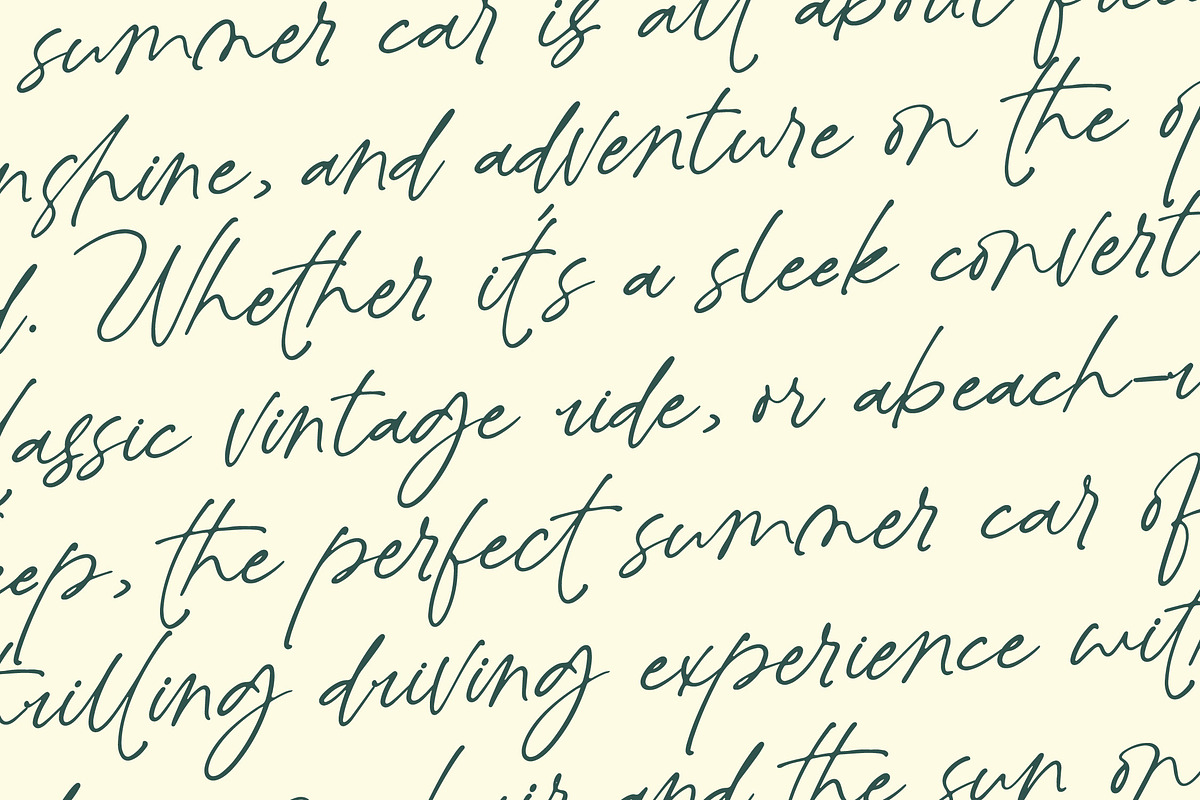 summer car is all about
nshine, and adventure on the op
d. Whether it's a sleek convert
lassic vintage ride, or abeach-r
eep, the perfect summer car of
trilling driving experience with
and the sun on